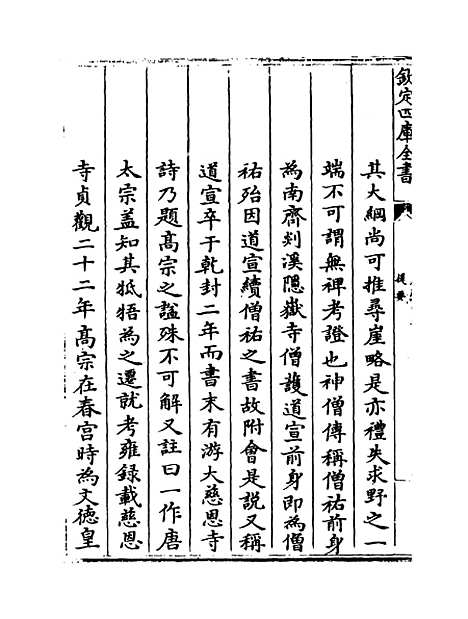 欽定四庫全書
提要
其大綱尚可推尋崖略是亦禮失求野之一
端不可謂無裨考證也神僧傳稱僧祐前身
為南齊剡溪隠嶽寺僧䕶道宣前身即為僧
祐殆因道宣續僧祐之書故附會是説又稱
道宣卒于乾封二年而書末有游大慈恩寺
詩乃題髙宗之諡殊不可解又註曰一作唐
太宗盖知其牴牾為之遷就考雍録載慈恩
寺貞觀二十二年髙宗在春宫時為文徳皇